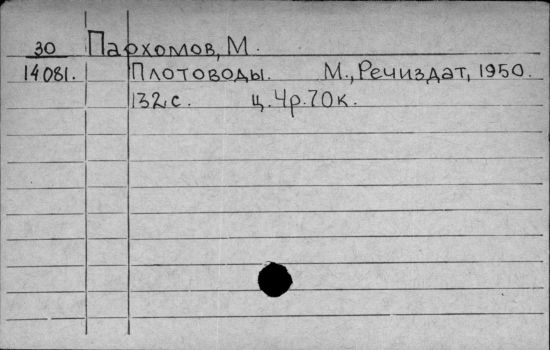 30 Пархомов, М.
14081. Плотоводы. М., Речиздат, 1950.
132 с. ц. 4р. 70 к.